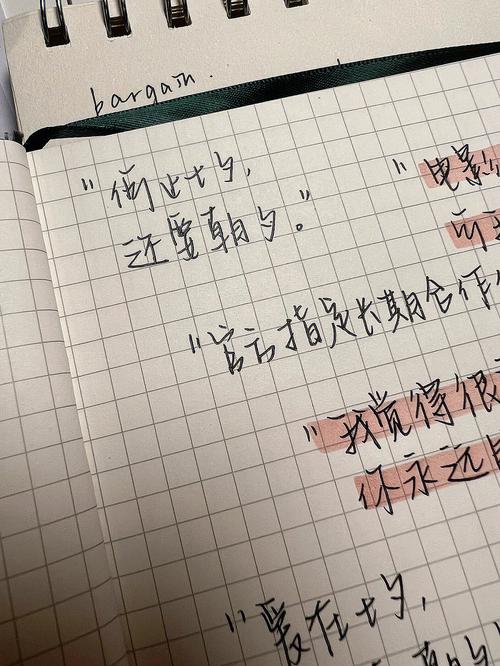 bargain.
"何止七夕,
还要朝夕。"
"电影
"官方指定长期合作
"我觉得很
你永远
"爱在七夕,